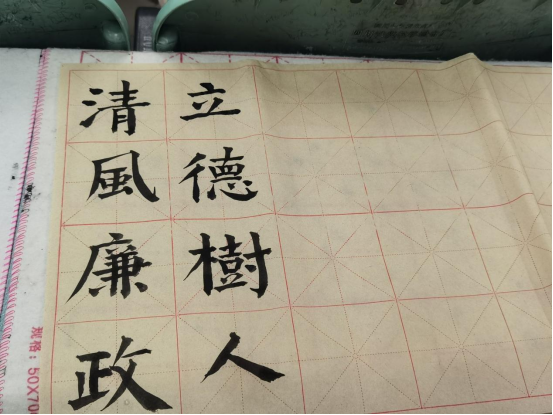 立德樹人
清風廉政
规格：50X70